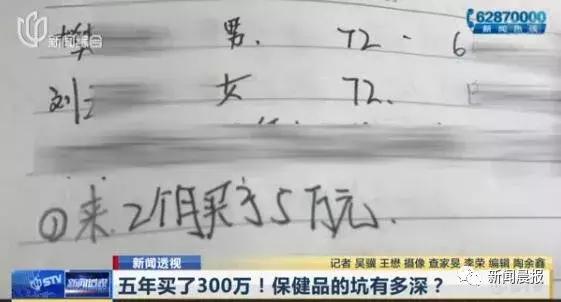 新闻综合
62870000
新闻热线
男. 72 - 6
刘 女 72.
①来. 2个月买了5万元.
新闻透视
记者 吴骥 王懋 摄像 查家旻 李荣 编辑 陶余鑫
STV
新闻透视
五年买了300万！保健品的坑有多深？
新闻晨报